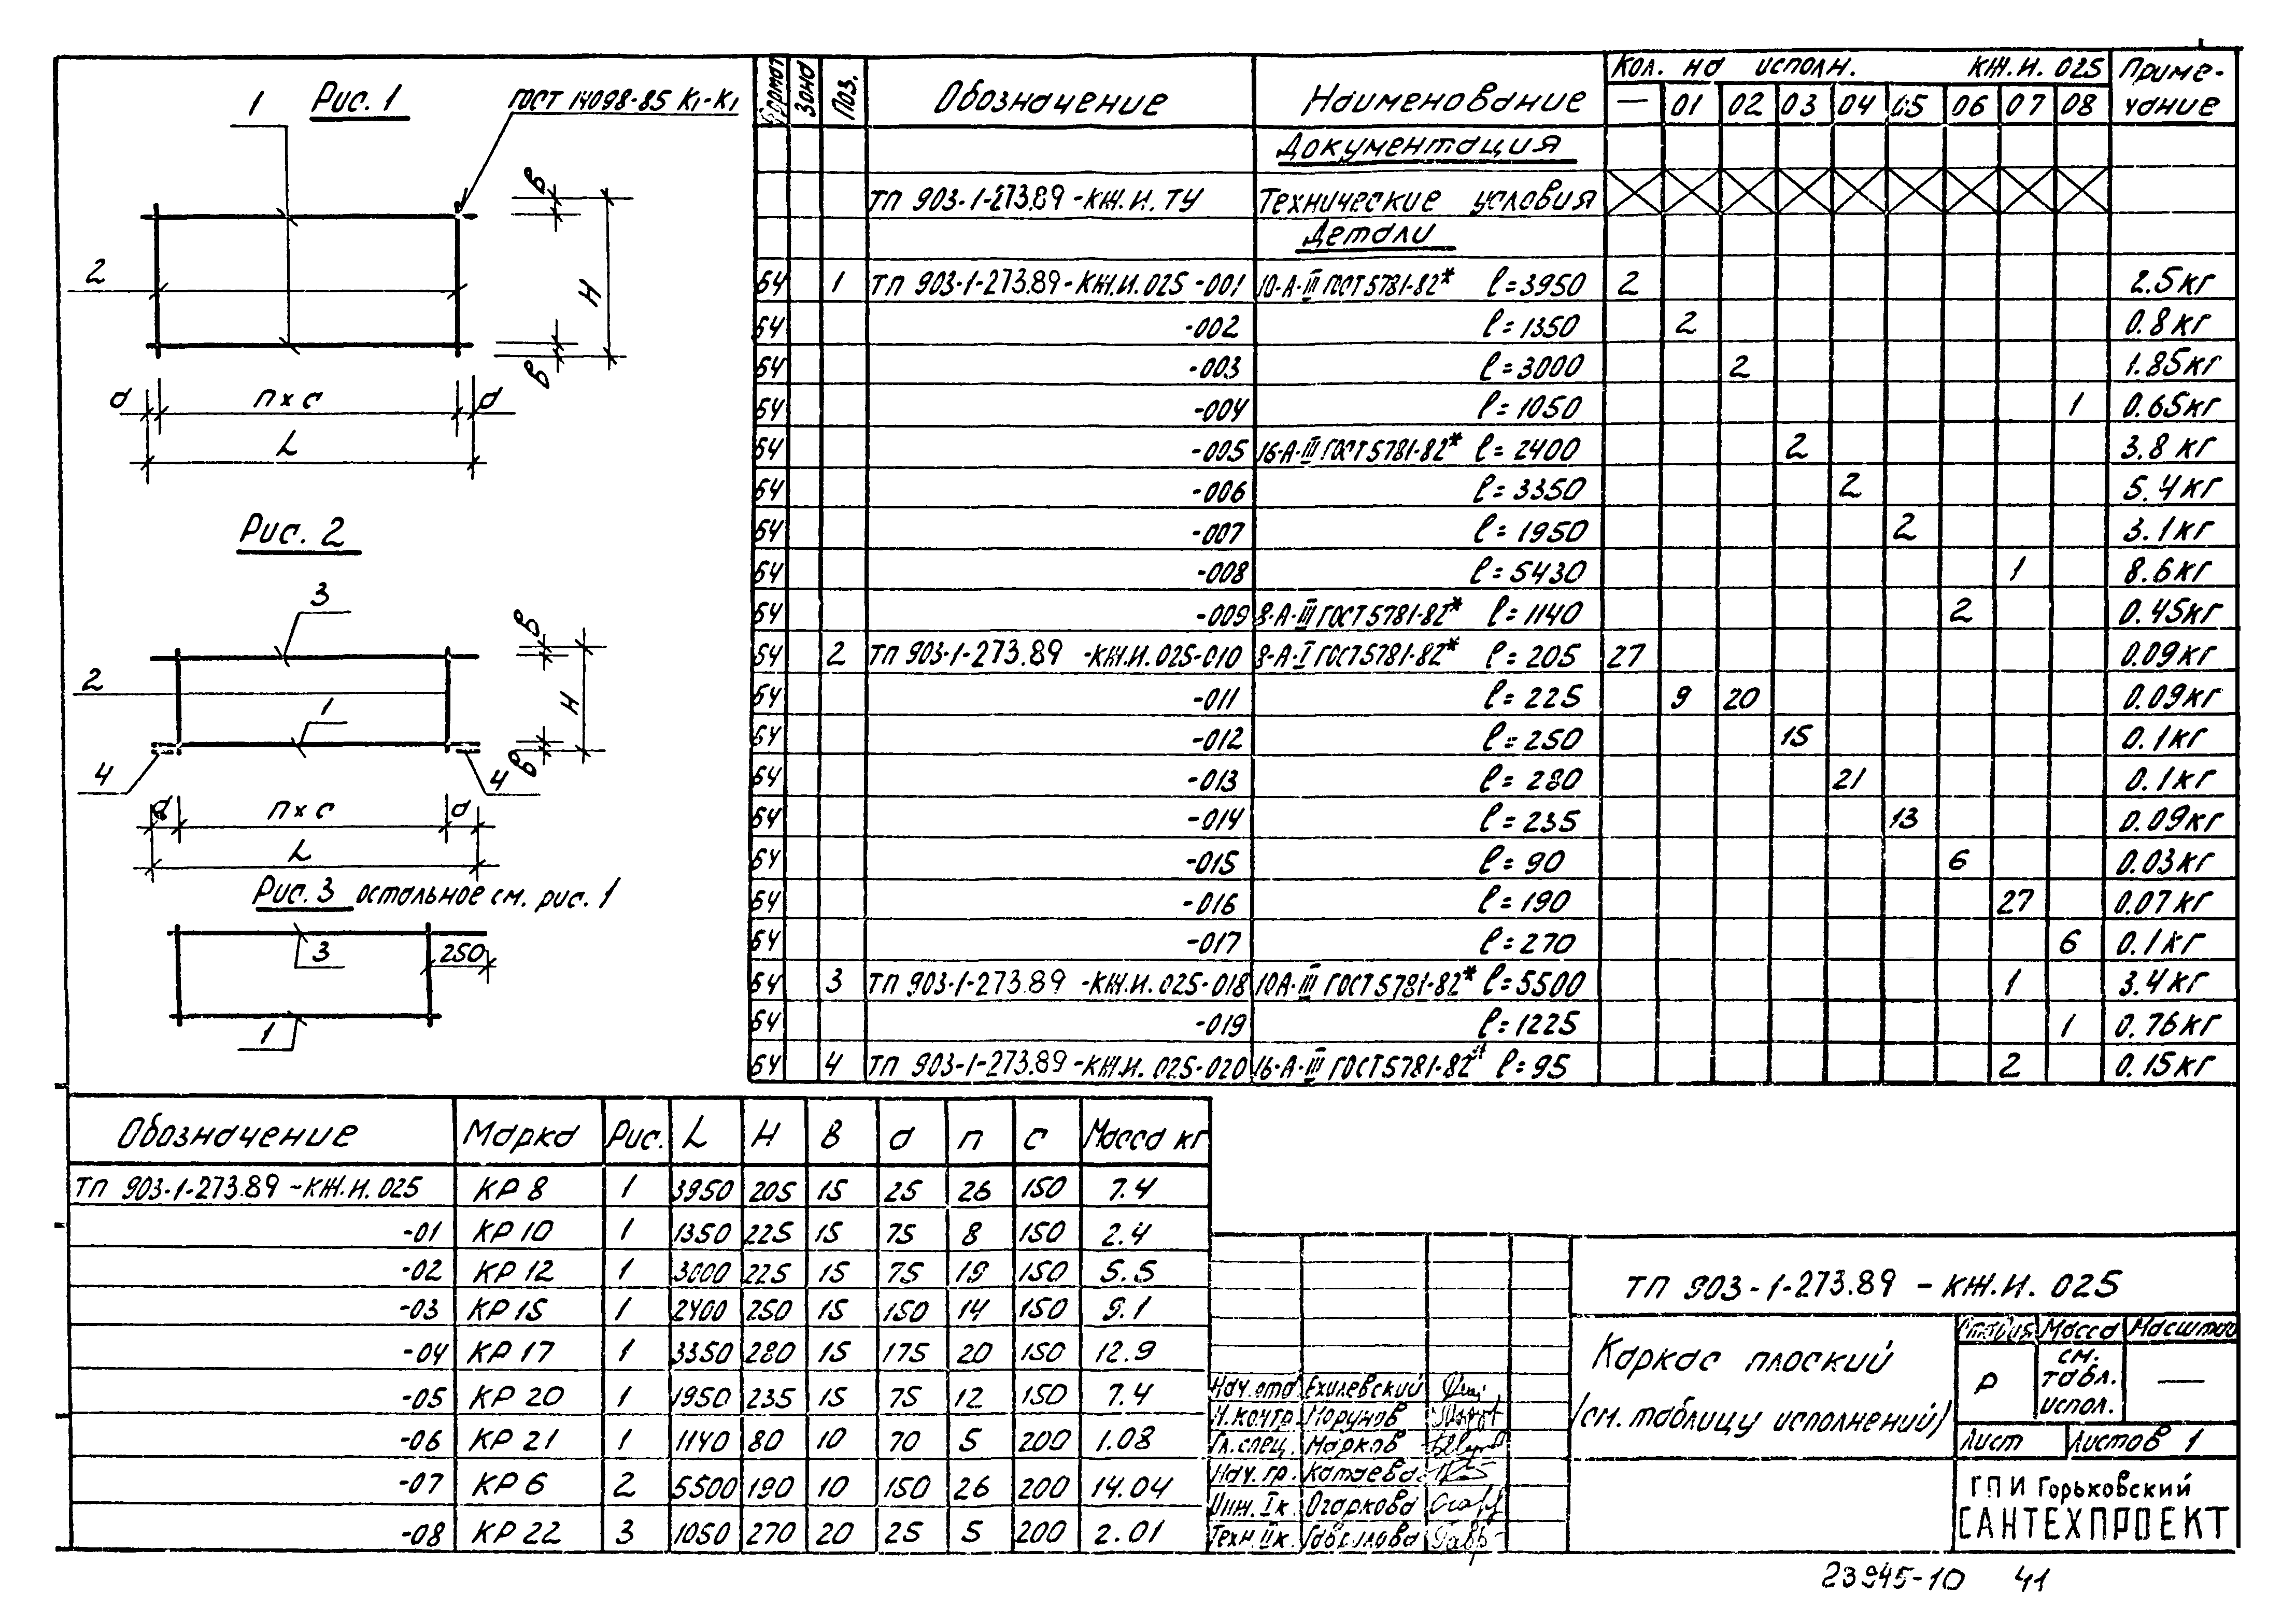 Рис. 1
ГОСТ 14098-85 К1-К1
1
2
в
H
в
а п×с а
L
Рис. 2
3
2
1
4
4
в
H
в
а п×с а
L
Рис. 3 остальное см. рис. 1
3
250
1
Формат Зона Поз. Обозначение Наименование Кол. на исполн. КЖ.И. 025 Приме-
— 01 02 03 04 05 06 07 08 чание
Документация
ТП 903-1-273.89-КЖ.И. ТУ Технические условия
Детали
БЧ 1 ТП 903-1-273.89-КЖ.И. 025-001 10-А-III ГОСТ 5781-82* ℓ=3950 2 2.5кг
БЧ -002 ℓ=1350 2 0.8кг
БЧ -003 ℓ=3000 2 1.85кг
БЧ -004 ℓ=1050 1 0.65кг
БЧ -005 16-А-III ГОСТ 5781-82* ℓ=2400 2 3.8кг
БЧ -006 ℓ=3350 2 5.4кг
БЧ -007 ℓ=1950 2 3.1кг
БЧ -008 ℓ=5430 1 8.6кг
БЧ -009 8-А-III ГОСТ 5781-82* ℓ=1140 2 0.45кг
БЧ 2 ТП 903-1-273.89 -КЖ.И. 025-010 8-А-I ГОСТ 5781-82* ℓ=205 27 0.09кг
БЧ -011 ℓ=225 9 20 0.09кг
БЧ -012 ℓ=250 15 0.1кг
БЧ -013 ℓ=280 21 0.1кг
БЧ -014 ℓ=235 13 0.09кг
БЧ -015 ℓ=90 6 0.03кг
БЧ -016 ℓ=190 27 0.07кг
БЧ -017 ℓ=270 6 0.1кг
БЧ 3 ТП 903-1-273.89 -КЖ.И. 025-018 10А-III ГОСТ 5781-82* ℓ=5500 1 3.4кг
БЧ -019 ℓ=1225 1 0.76кг
БЧ 4 ТП 903-1-273.89-КЖ.И. 025-020 16-А-III ГОСТ 5781-82* ℓ=95 2 0.15кг
Обозначение Марка Рис. L H В а п с Масса кг
ТП 903-1-273.89-КЖ.И. 025 КР 8 1 3950 205 15 25 26 150 7.4
-01 КР 10 1 1350 225 15 75 8 150 2.4
-02 КР 12 1 3000 225 15 75 19 150 5.5
-03 КР 15 1 2400 250 15 150 14 150 9.1
-04 КР 17 1 3350 280 15 175 20 150 12.9
-05 КР 20 1 1950 235 15 75 12 150 7.4
-06 КР 21 1 1140 80 10 70 5 200 1.08
-07 КР 6 2 5500 190 10 150 26 200 14.04
-08 КР 22 3 1050 270 20 25 5 200 2.01
ТП 903-1-273.89 - КЖ.И. 025
Каркас плоский
(см. таблицу исполнений)
Стадия Масса Масштаб
Р см. табл. испол. —
Лист Листов 1
ГПИ Горьковский
САНТЕХПРОЕКТ
Нач. отд Ехилевский
Н. контр. Морунов
Гл. спец. Марков
Нач. гр. Катаева
Инж. Iк. Огаркова
Техн. IIк. Гаврилова
23945-10 41